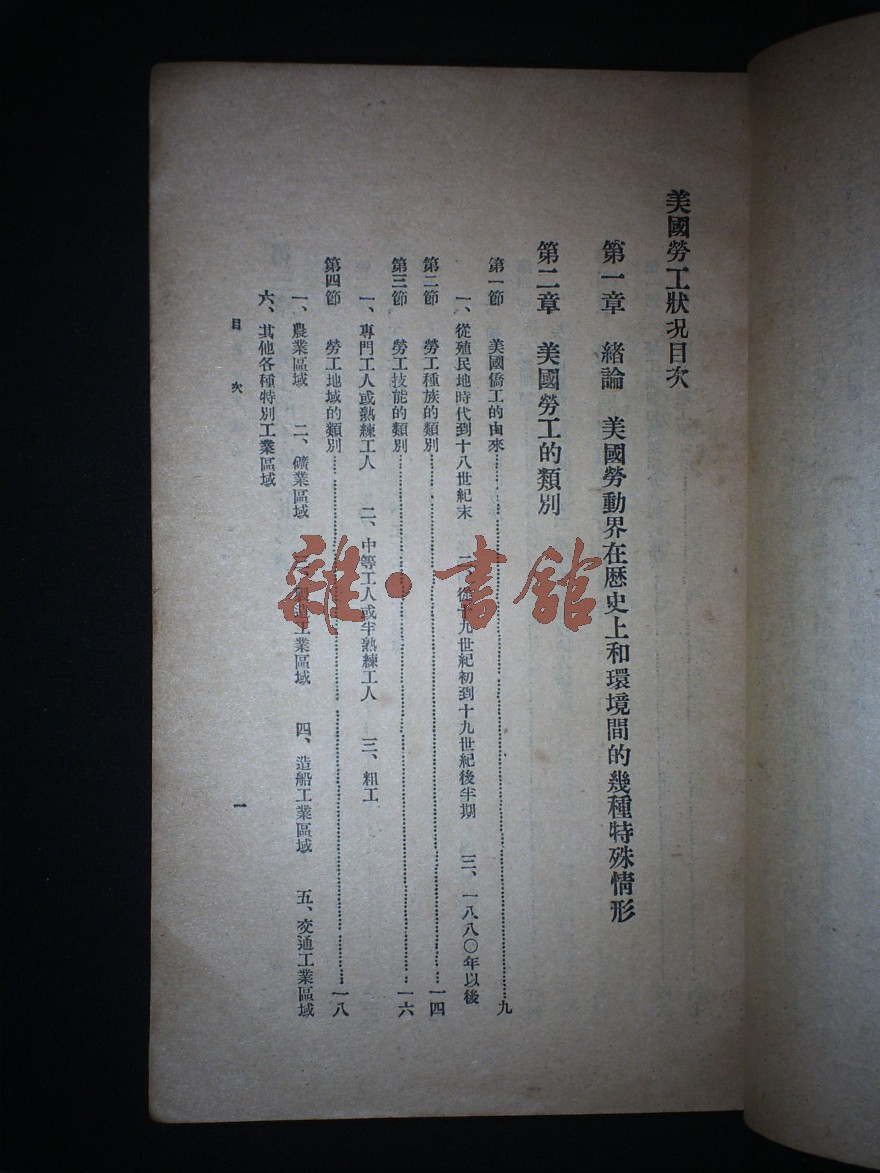 美國勞工狀況目次
第一章 緒論 美國勞動界在歷史上和環境間的幾種特殊情形
第二章 美國勞工的類別
第一節 美國僑工的由來……九
一、從殖民地時代到十八世紀末 二、從十九世紀初到十九世紀後半期 三、一八八〇年以後
第二節 勞工種族的類別……一四
第三節 勞工技能的類別……一六
一、專門工人或熟練工人 二、中等工人或半熟練工人 三、粗工
第四節 勞工地域的類別……一八
一、農業區域 二、礦業區域 三、製造工業區域 四、造船工業區域 五、交通工業區域
六、其他各種特別工業區域
目次
一
雜·書館